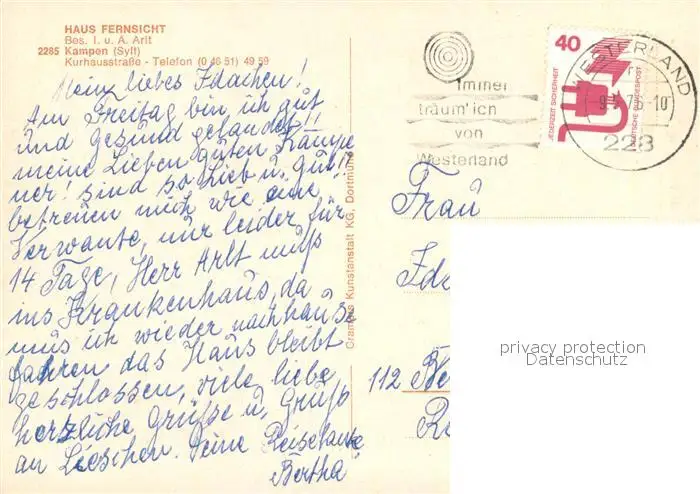 HAUS FERNSICHT
Bes. I. u. A. Arlt
2285 Kampen (Sylt)
Kurhausstraße - Telefon (0 46 51) 49 59
Meinz liebes Idachen!
Am Freitag bin ich gut
und gesund gelandet!!
meine Lieben guten Kämpe
ner! sind so Lieb u. gut!!
betreuen mich wie eine
Verwante, nur leider für
14 Tage, Herr Arlt muß
ins Krankenhaus, da
mus ich wieder nachhause
fahren das Haus bleibt
geschlossen, viele liebe
herzliche Grüsse u, Gruß
an Lieschen. Deine Reisetante
Bertha
Kunstanstalt KG, Dortmund
immer
träum' ich
von
Westerland
40
JEDERZEIT SICHERHEIT
DEUTSCHE BUNDESPOST
WESTERLAND
-10
228
Frau
112
privacy protection
Datenschutz